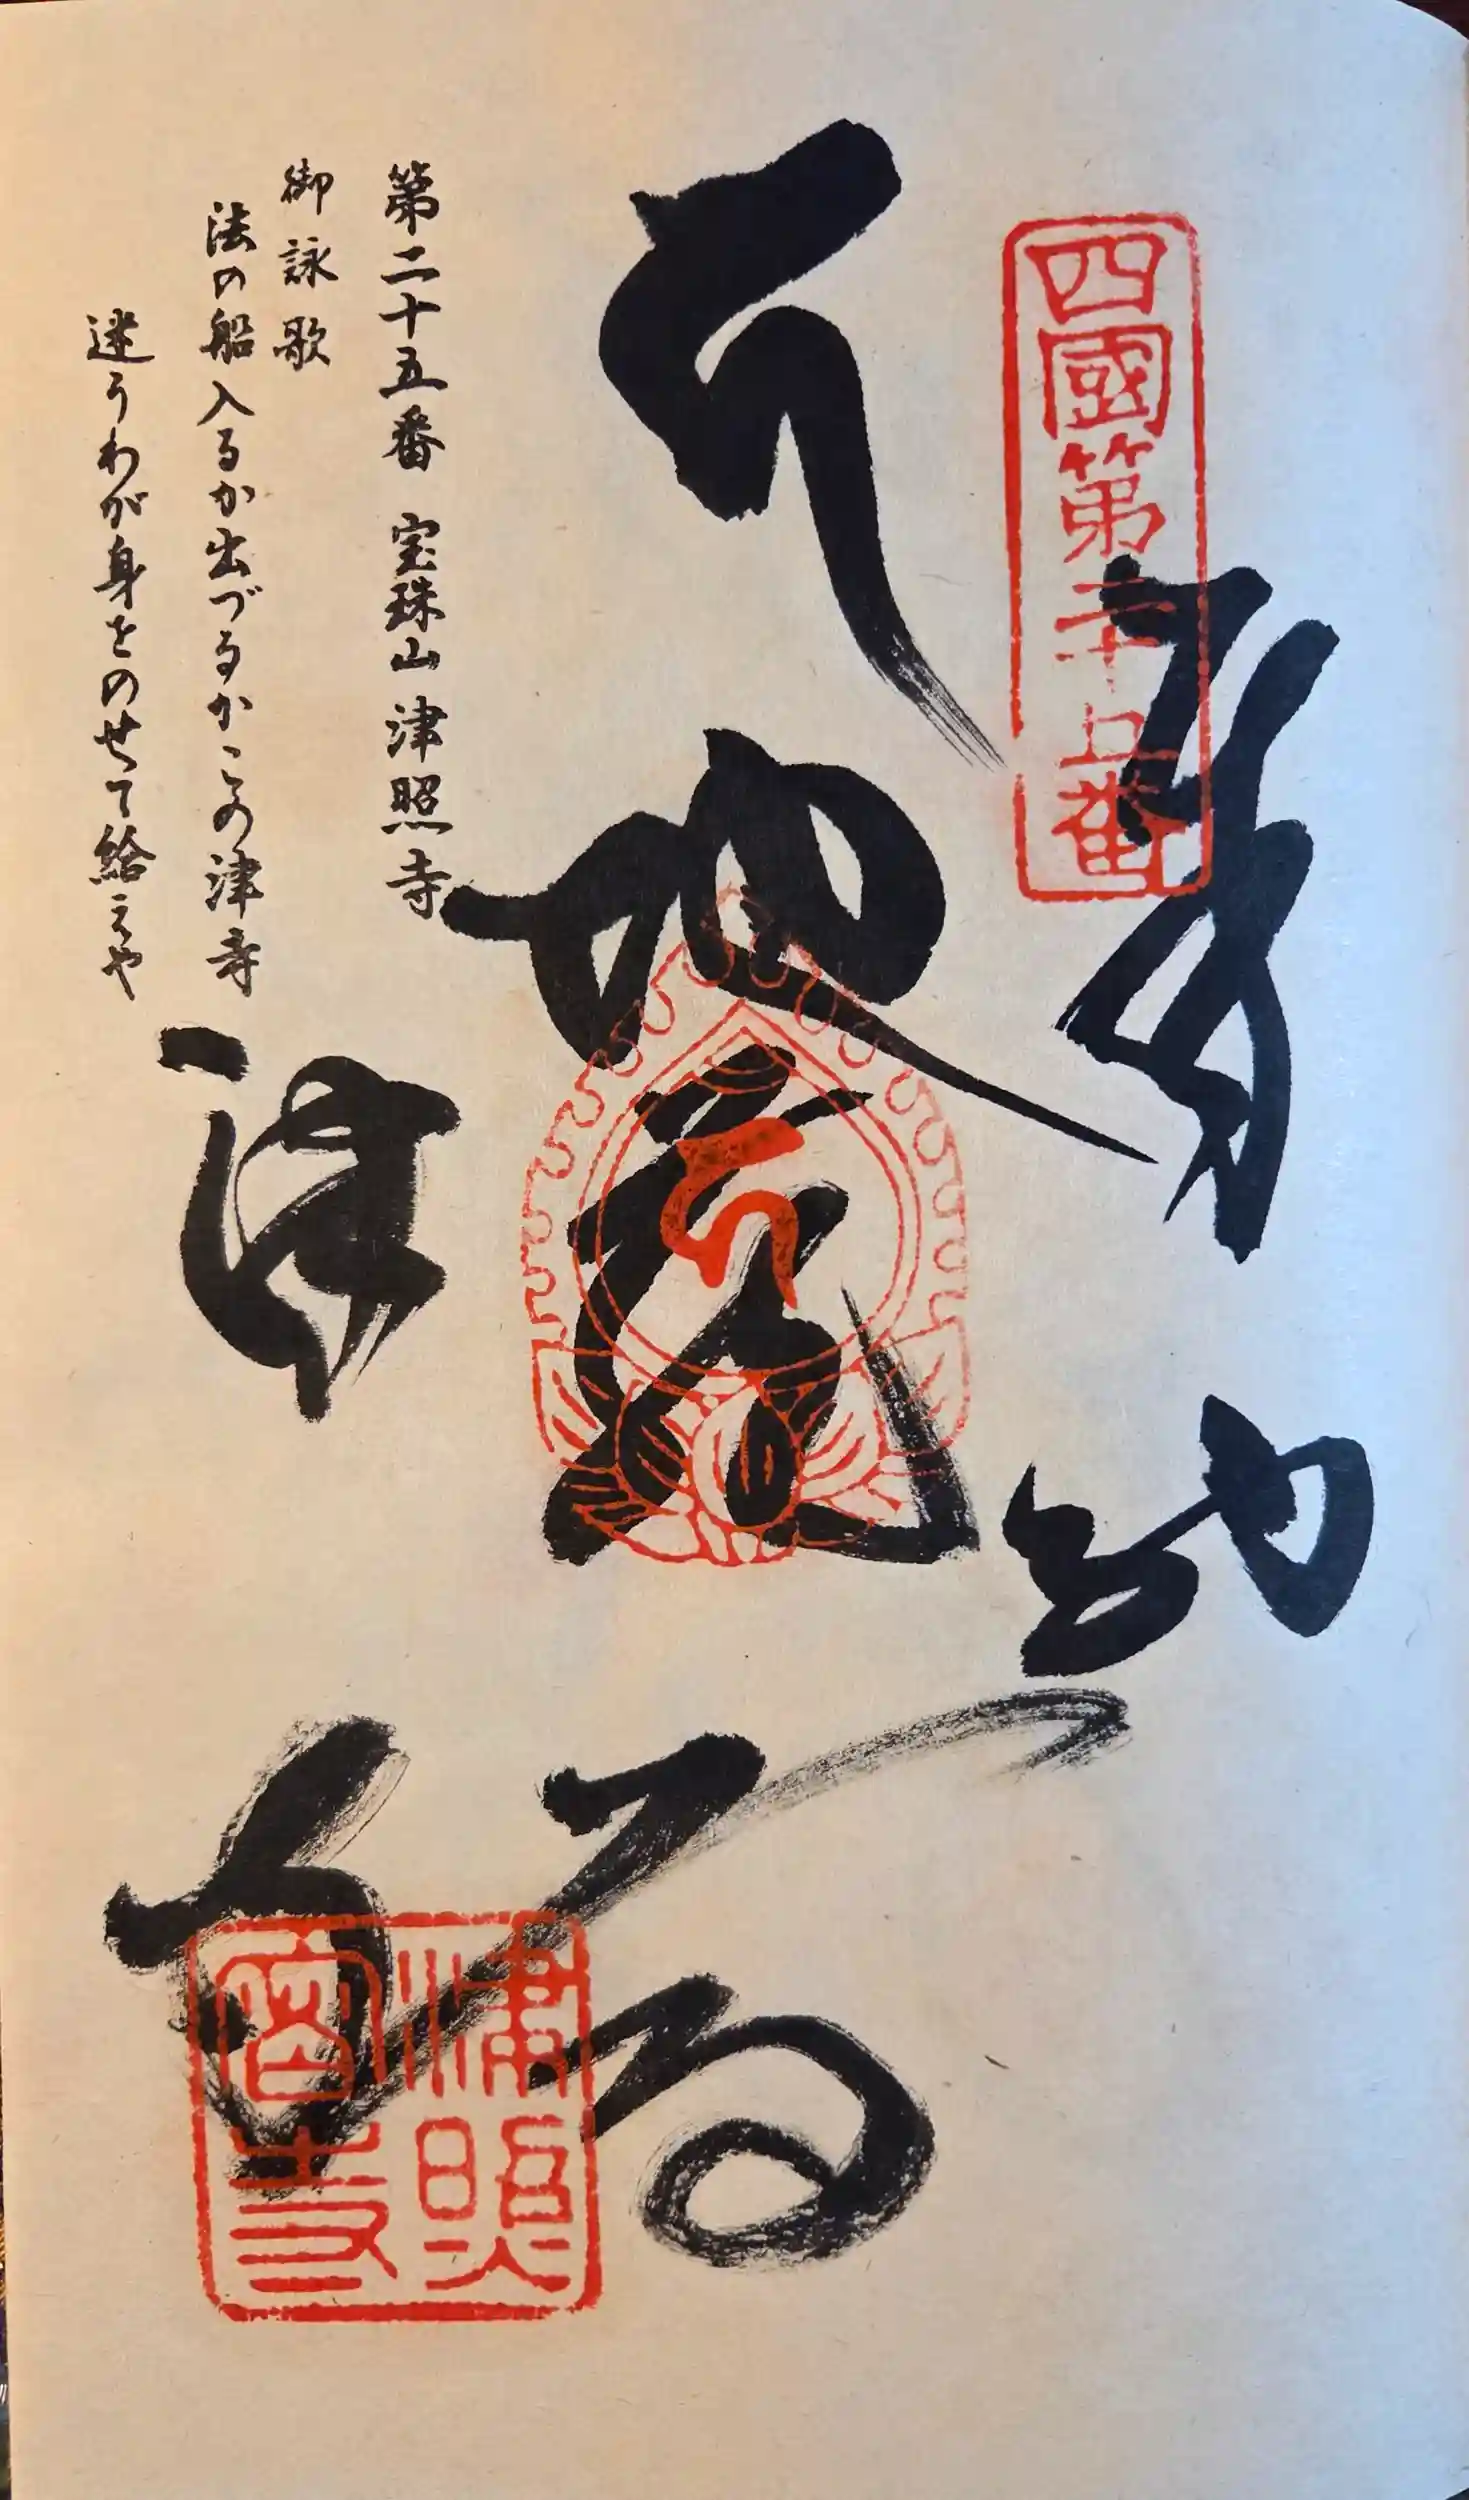 四國第二十五番
奉納
地蔵尊
津寺
津照密寺
第二十五番 宝珠山 津照寺
御詠歌
法の船入るか出づるかこの津寺
迷うわが身をのせて給えや